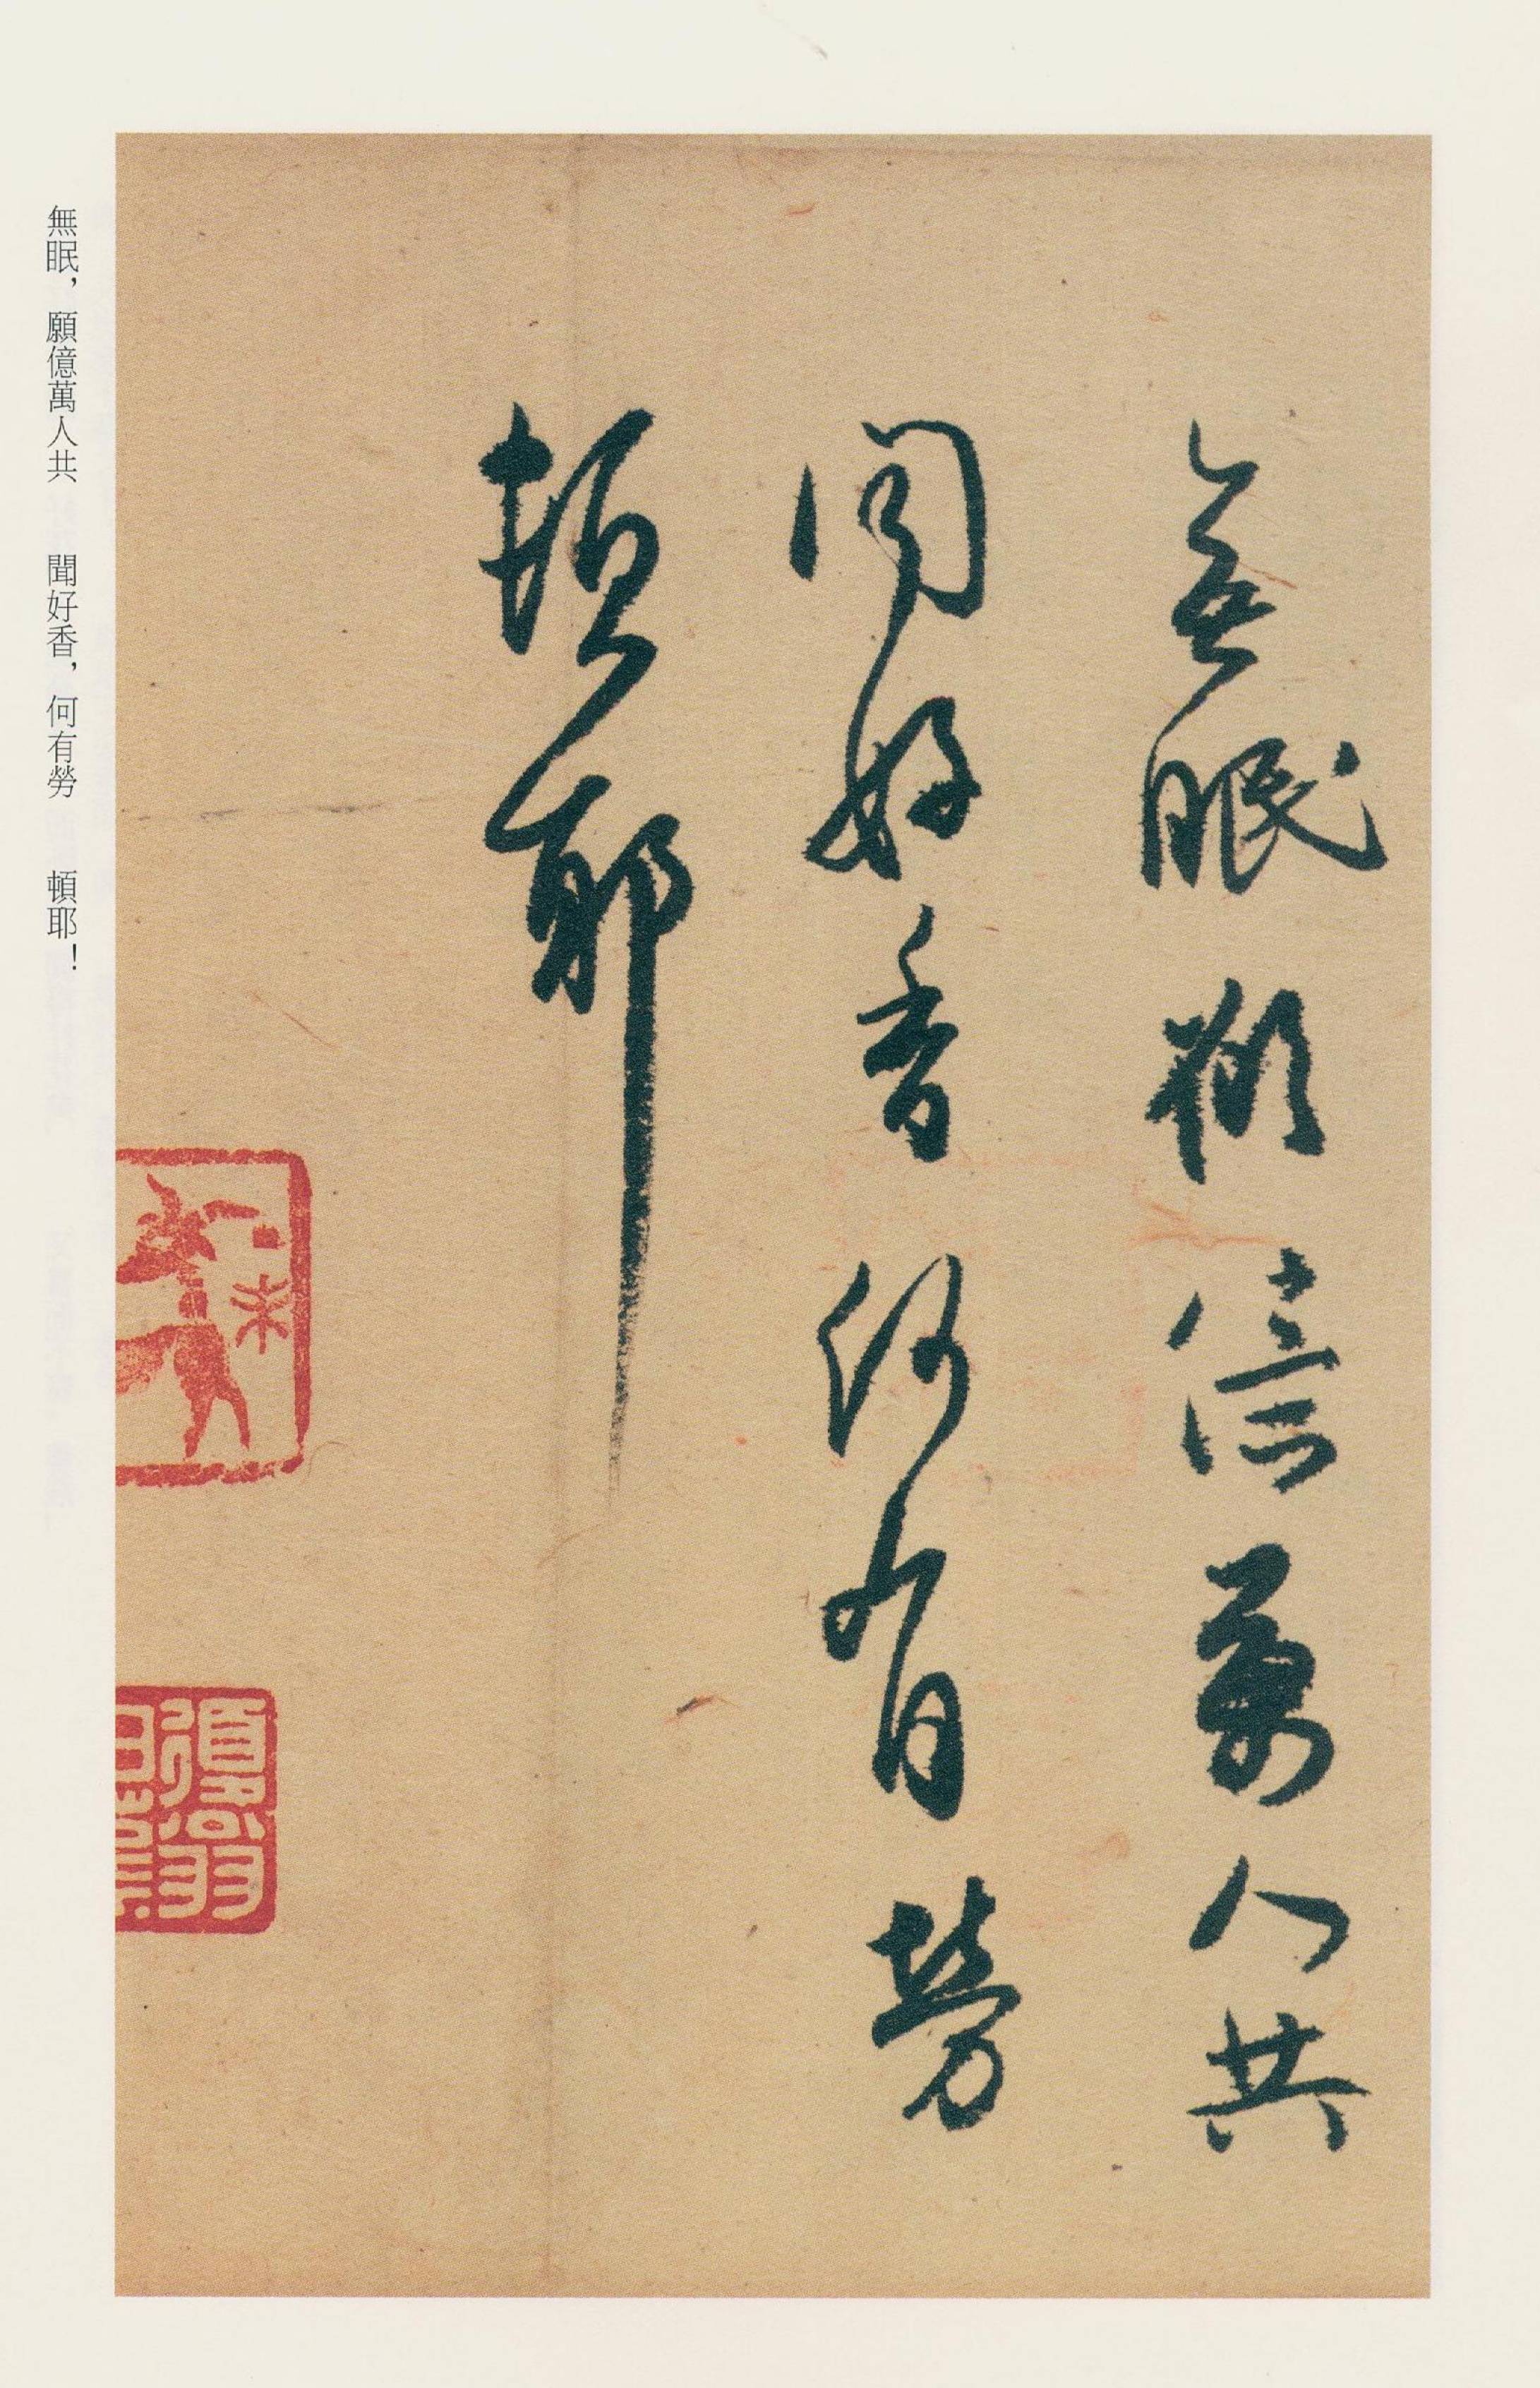 無眠願億萬人共
聞好香何有勞
頓耶
無眠，願億萬人共　聞好香，何有勞　頓耶！